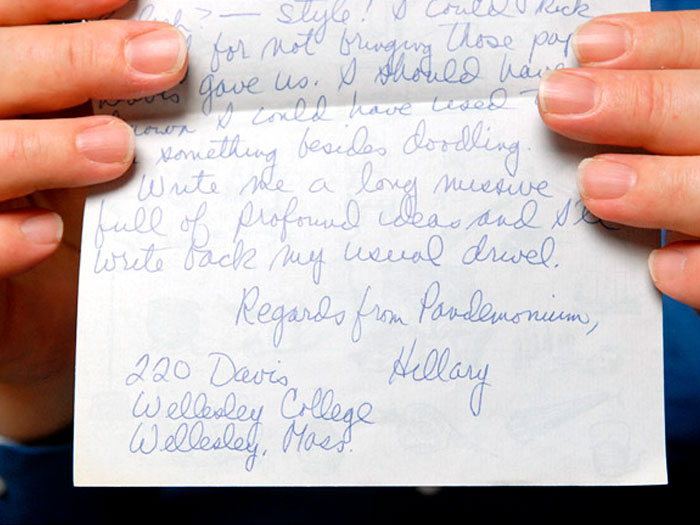 ? — style! I could kick
for not bringing those pap
Davis gave us. I should have
known I could have used
something besides doodling.
Write me a long missive
full of profound ideas and I'll
write back my usual drivel.
Regards from Pandemonium,
Hillary
220 Davis
Wellesley College
Wellesley, Mass.